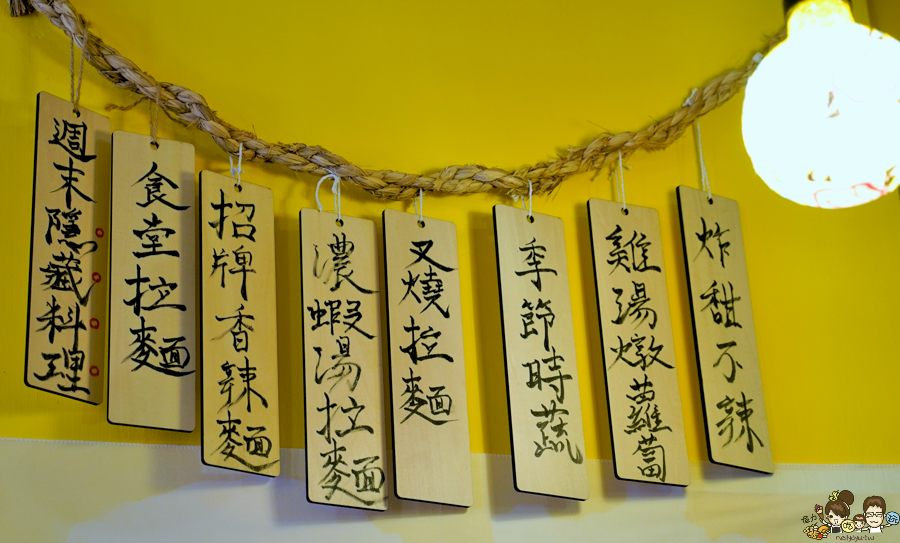 週末隱藏料理
食堂拉麵
招牌香辣麵
濃蝦湯拉麵
叉燒拉麵
季節時蔬
雞湯燉蘿蔔
炸甜不辣